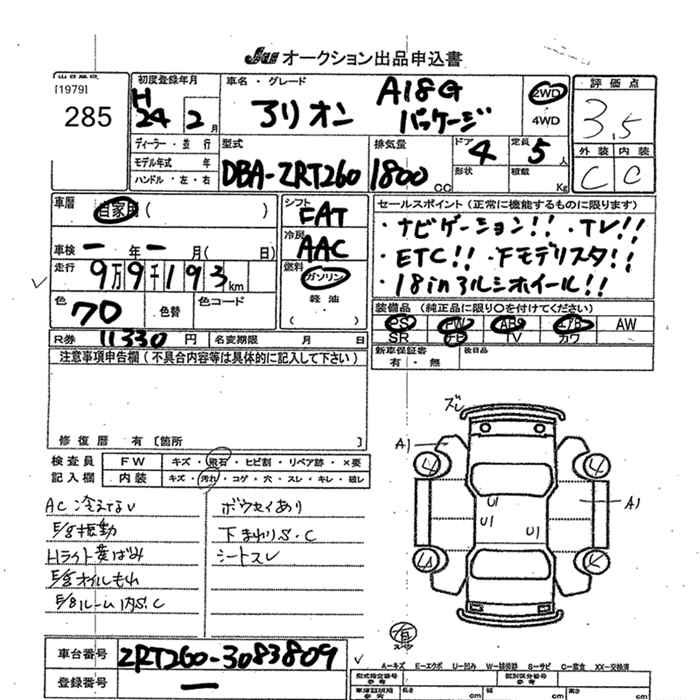 JU オークション出品申込書
[1979]
285
初度登録年月
H
24 2 月
車名・グレード
アリオン A18G
パッケージ
2WD
4WD
評価点
3.5
外装 内装
C C
ディーラー・並行
モデル年式 年
ハンドル・左・右
型式
DBA-ZRT260
排気量
1800 CC
ドア
4
形状
定員
5 人
積載 Kg
車歴
自家用 ( )
車検 ー 年 ー 月( 日)
走行 9万9千193 km
色 70 色替 色コード
シフト
FAT
冷房
AAC
燃料
ガソリン
軽油
( )
セールスポイント(正常に機能するものに限ります)
・ナビゲーション!!・TV!!
・ETC!!・下モデリスタ!!
・18inアルミホイール!!
装備品(純正品に限り○を付けてください)
PS PW ABS エアB AW
SR ナビ TV カワ
新車保証書
有・無
後日品
R券 11330 円 名変期限 月 日
注意事項申告欄(不具合内容等は具体的に記入して下さい)
修復歴 有〔箇所
検査員 FW キズ・飛石・ヒビ割・リペア跡・×要
記入欄 内装 キズ・汚れ・コゲ・穴・スレ・キレ・破レ
AC冷えない
E/g振動
Hライト黄ばみ
E/gオイルもれ
E/gルーム内S.C
ボウセイあり
下まわりS.C
シートスレ
ズレ
A1
4 4
U1
U1 U1
A1
有
車台番号 ZRT260-3083809
登録番号 ー
A―キズ E―エクボ U―凹み W―補修跡 S―サビ C―腐食 XX―交換済
型式指定番号
類別区分番号
長さ cm
cm
cm